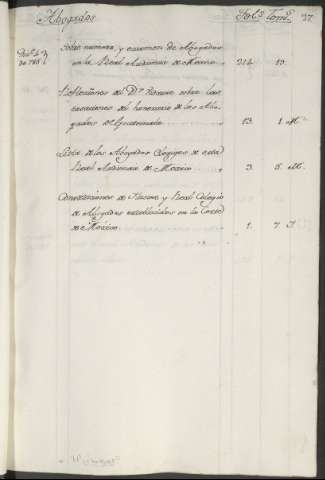 Abogados
Fol.s Tom.s 37
Sobre numero, y examen de Abogados
de 785
en la Real Audiencia de Mexico 214. 19.
Reflexiones del D.r sobre las
tasaciones del honorario de los Abo-
gados de Guatemala 13. 1. M.
Lista de los Abogados Colegas de esta
Real Audiencia de Mexico 3. 5. M.
Constituciones de Ilustre y Real Colegio
de Abogados establecidos en la Corte
de Mexico 1. 7. I.